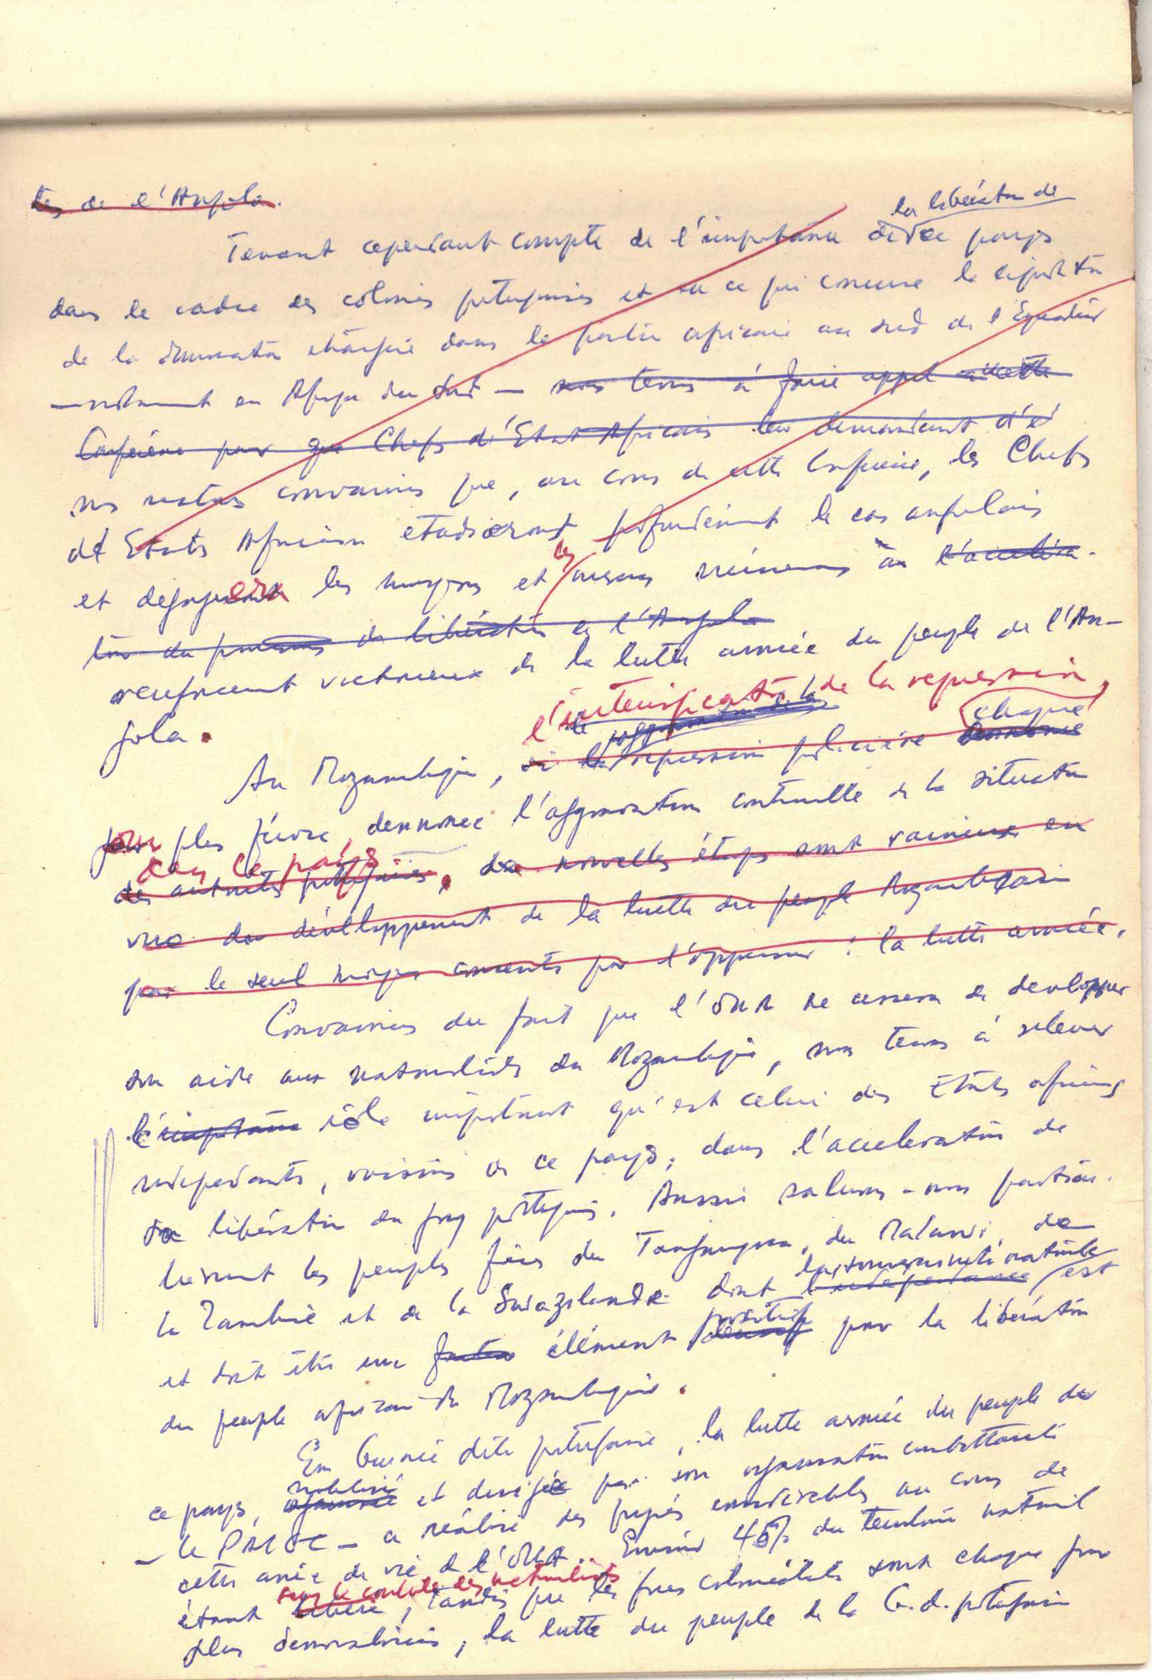 tes de l'Angola.
la libération de
Tenant cependant compte de l'importance de ce pays
dans le cadre des colonies portugaises et en ce qui concerne la
de la domination étrangère dans la partie africaine au sud de l'Equateur
— notamment en Afrique du Sud — nous tenons à faire appel à cette
Conférence pour que Chefs d'Etat Africains
nous restons convaincus que, au cours de cette Conférence, les Chefs
d'Etats Africains étudieront profondément le cas angolais
et les moyens et les au
de libération de l'Angola
renforcement victorieux de la lutte armée du peuple de l'An-
gola.
l'intensification de la repression,
Au Mozambique, la repression policière chaque
jour plus féroce, dénonce l'aggravation continuelle de la situation
dans ce pays
des autorités portugaises, de nouvelles étapes sont vaincues en
vue du développement de la lutte du peuple Mozambicain
par le seul moyen consenti par l'oppresseur : la lutte armée.
Convaincus du fait que l'OUA ne cessera de developper
son aide aux nationalistes du Mozambique, nous tenons à relever
l'importance rôle important qu'est celui des Etats africains
indépendants, voisins de ce pays, dans l'acceleration de
sa libération du joug portugais. Aussi saluons-nous particu-
lièrement les peuples frères du Tanganyca, du Malawi, de
la souveraineté nationale
la Zambie et de la Swazilande dont l'indépendance est
positif
et doit être un facteur élément décisif pour la libération
du peuple africain du Mozambique.
En Guinée dite portugaise, la lutte armée du peuple de
mobilisé
ce pays, organisé et dirigée par son organisation combattante
— le PAIGC — a réalisé des progrès considérables au cours de
cette année de vie de l'OUA. Environ 45% du territoire national
sous le contrôle des nationalistes
étant libéré, tandis que les forces colonialistes sont chaque jour
plus demoralisées, la lutte du peuple de la G. d. portugaise